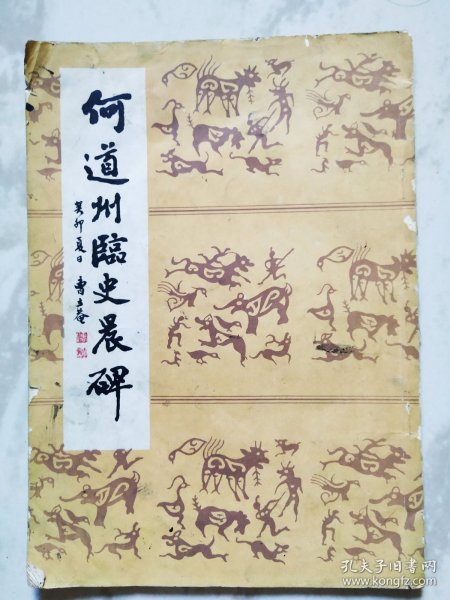 何道州臨史晨碑
癸卯夏日 曹立菴
孔夫子旧书网
www.kongfz.com